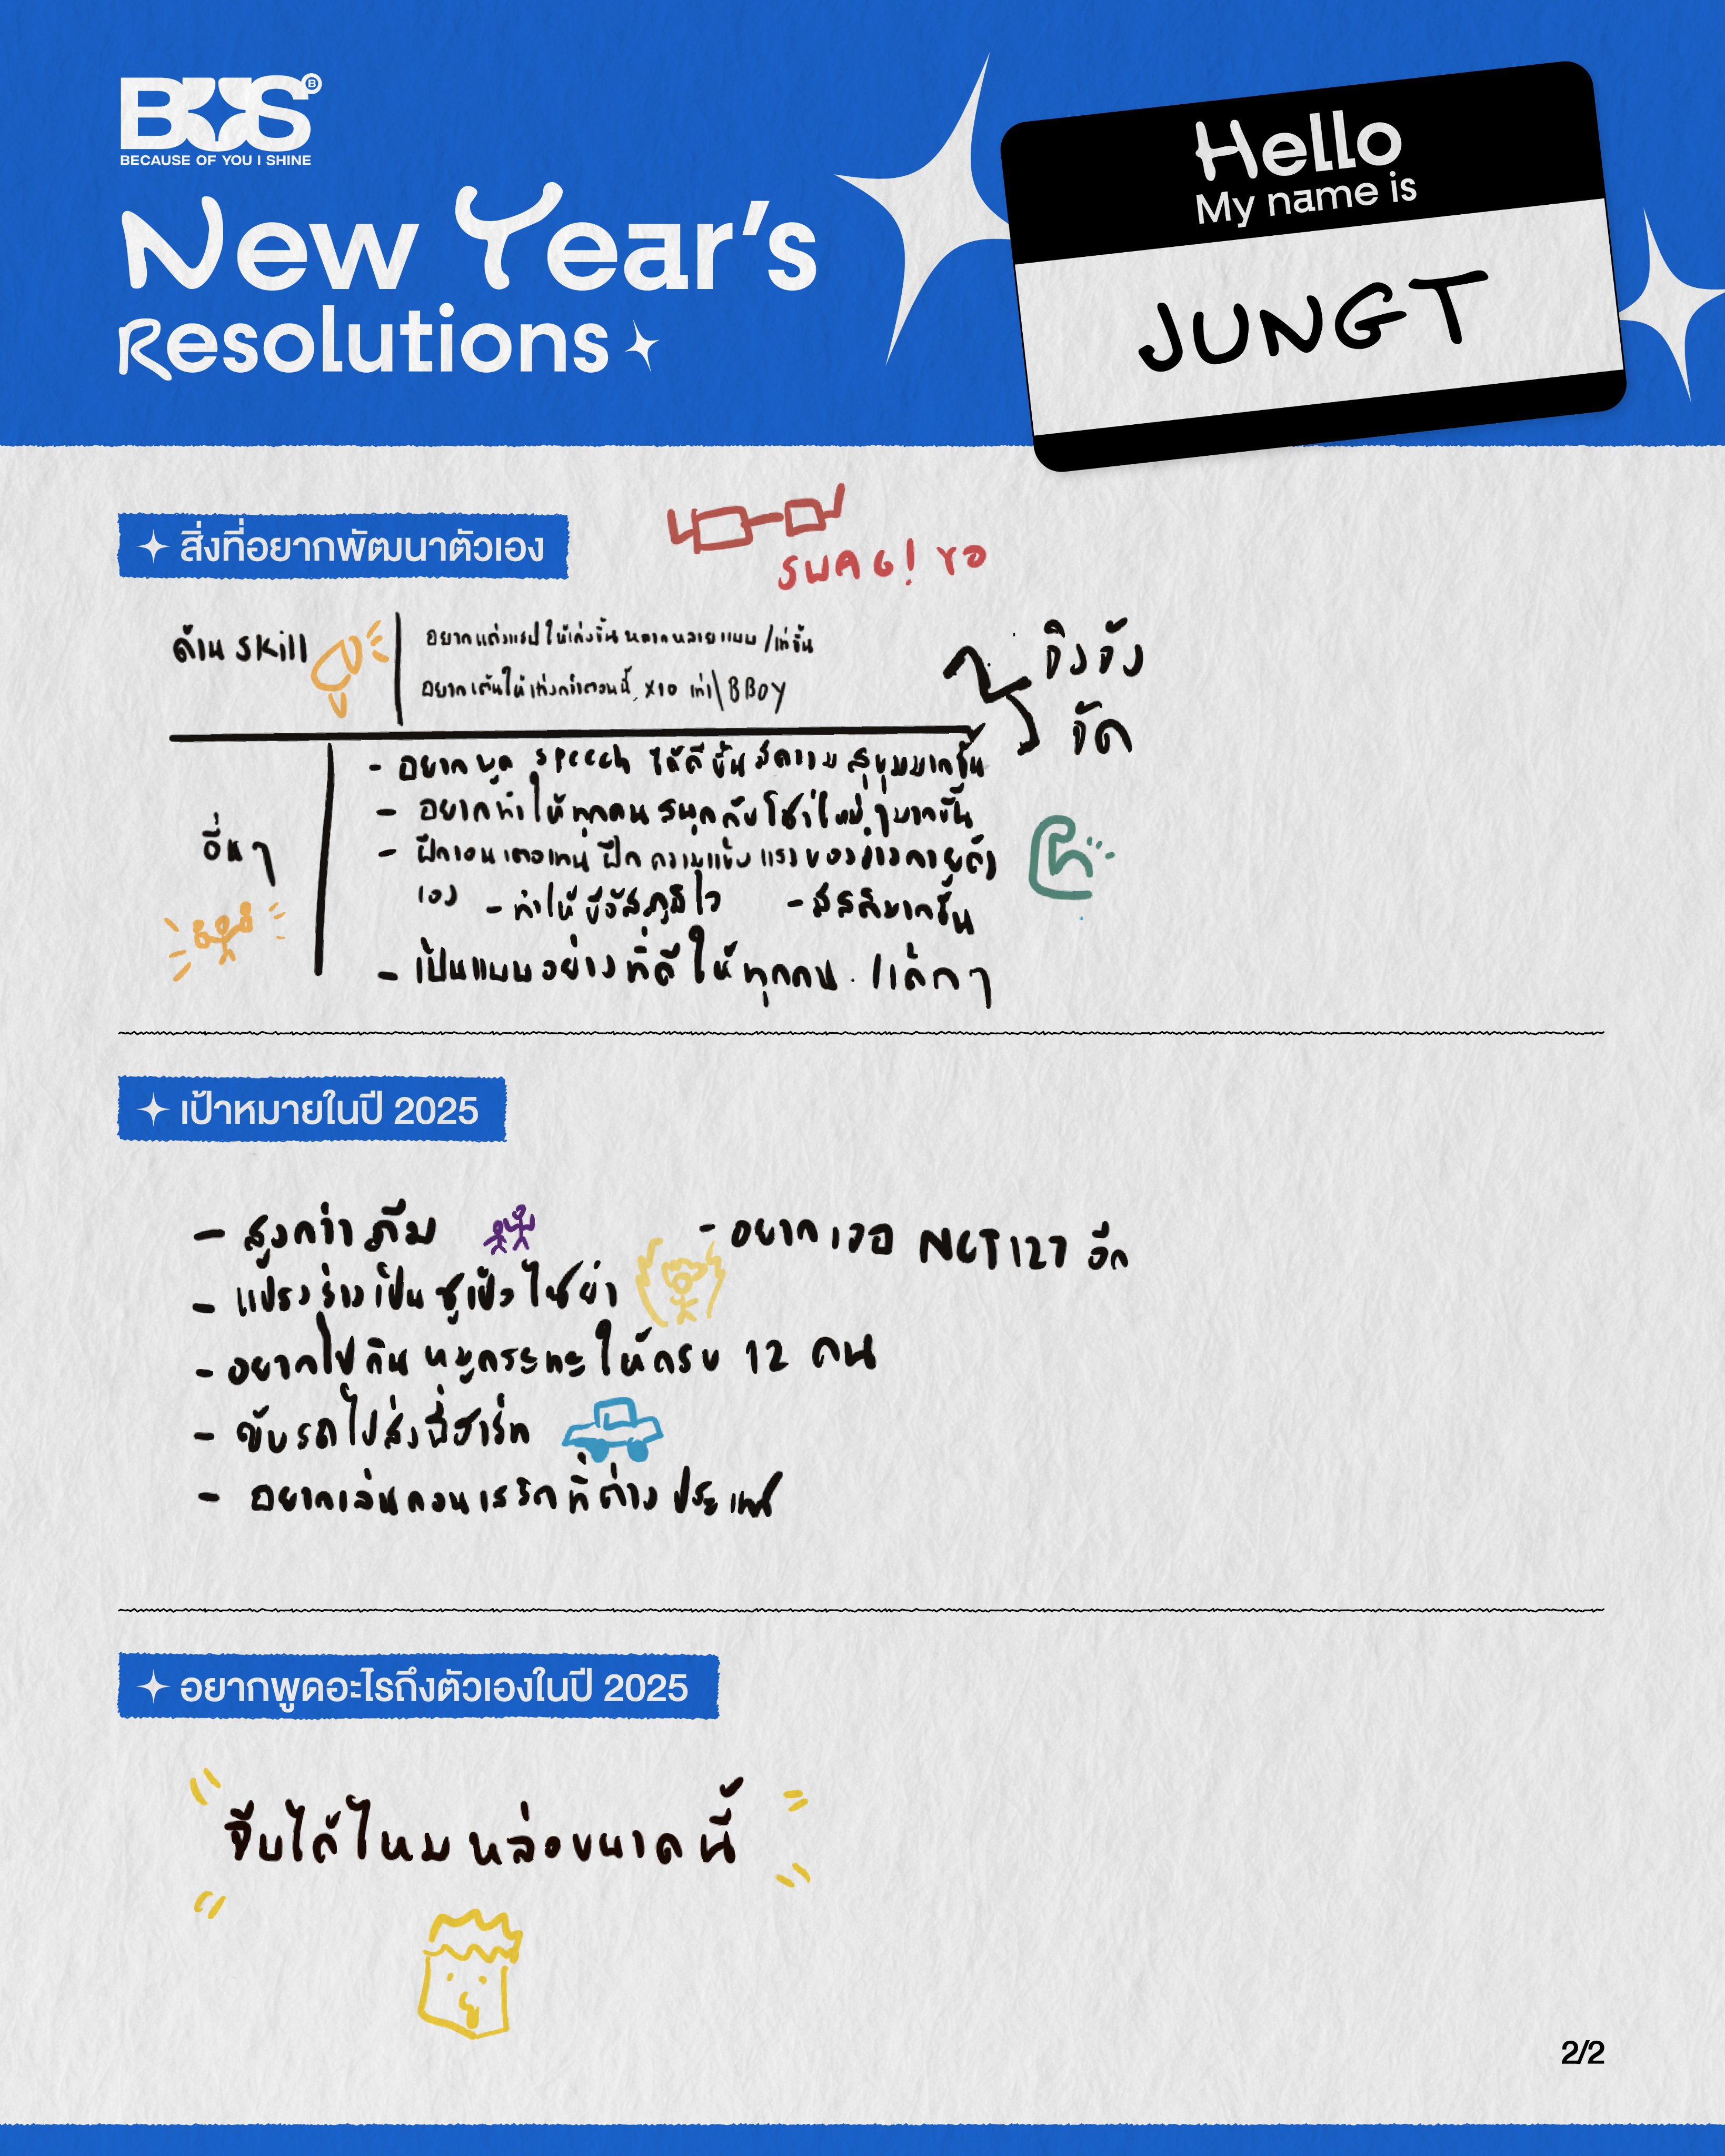 BUS
BECAUSE OF YOU I SHINE
New Year's
Resolutions
Hello
My name is
JUNGT
สิ่งที่อยากพัฒนาตัวเอง
SWAG! YO
ด้าน skill
อยากแต่งแรปให้เก่งขึ้น หลากหลายแบบ/เท่ขึ้น
อยากเต้นให้เก่งกว่าตอนนี้ x10 เท่า\BBOY
จึงจัง
จัด
อื่นๆ
- อยากพูด speech ได้ดีขึ้น มีความสุขุมมากขึ้น
- อยากทำให้ทุกคนสนุกกับโชว์ใหม่ๆมากขึ้น
- ฝึกเอนเตอเทน ฝึกความแข็งแรงของร่างกายตัว
เอง - ทำให้บีอัสภูมิใจ - มีสติมากขึ้น
- เป็นแบบอย่างที่ดีให้ทุกคน. /เด็กๆ
เป้าหมายในปี 2025
- สูงกว่าภีม
- อยากเจอ NCT127 อีก
- แปรงร่างเป็นซูเปอไซย่า
- อยากไปกินหมูกระทะให้ครบ 12 คน
- ขับรถไปส่งพี่ฮาร์ท
- อยากเล่นคอนเสริตที่ต่างประเทศ
อยากพูดอะไรถึงตัวเองในปี 2025
จีบได้ไหม หล่อขนาดนี้
2/2